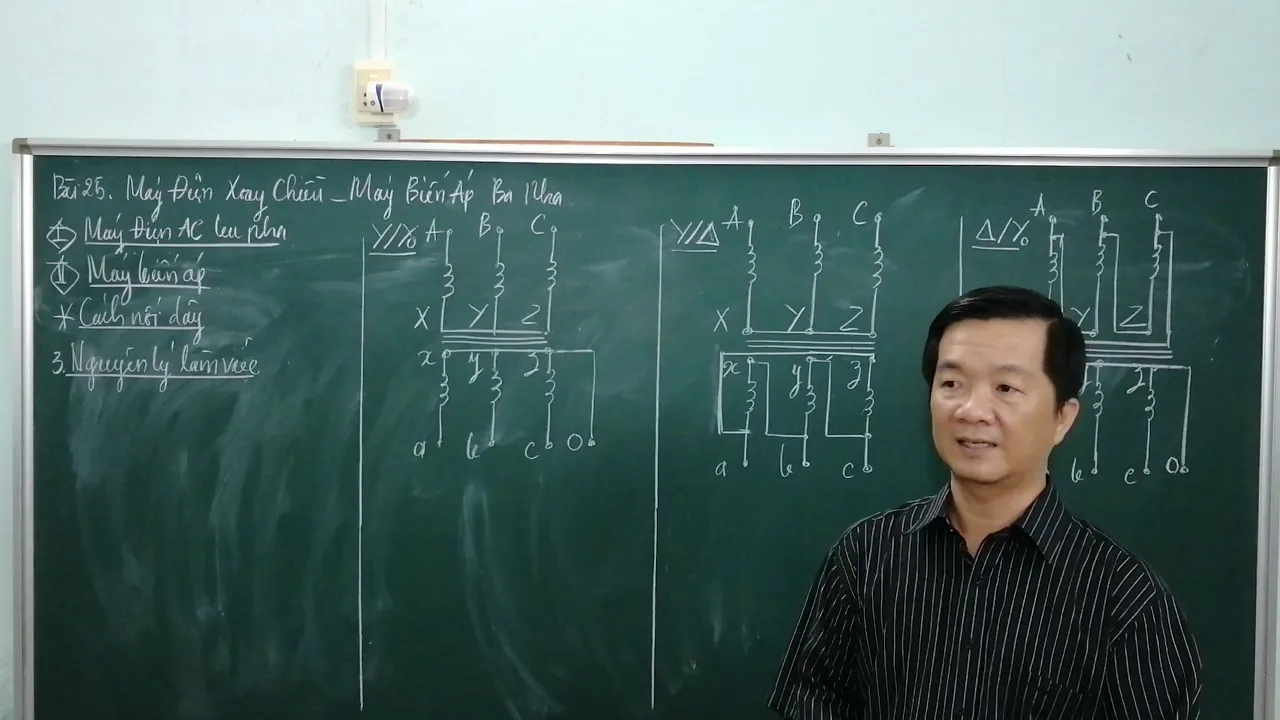 Bài 25. Máy Điện Xoay Chiều _ Máy Biến Áp Ba Pha
I Máy Điện AC ba pha
II Máy biến áp
* Cách nối dây
3. Nguyên lý làm việc
Y/Y₀ A B C
X Y Z
x y z
a b c O
Y/Δ A B C
X Y Z
x y z
a b c
Δ/Y₀ A B C
Y Z
y z
b c O